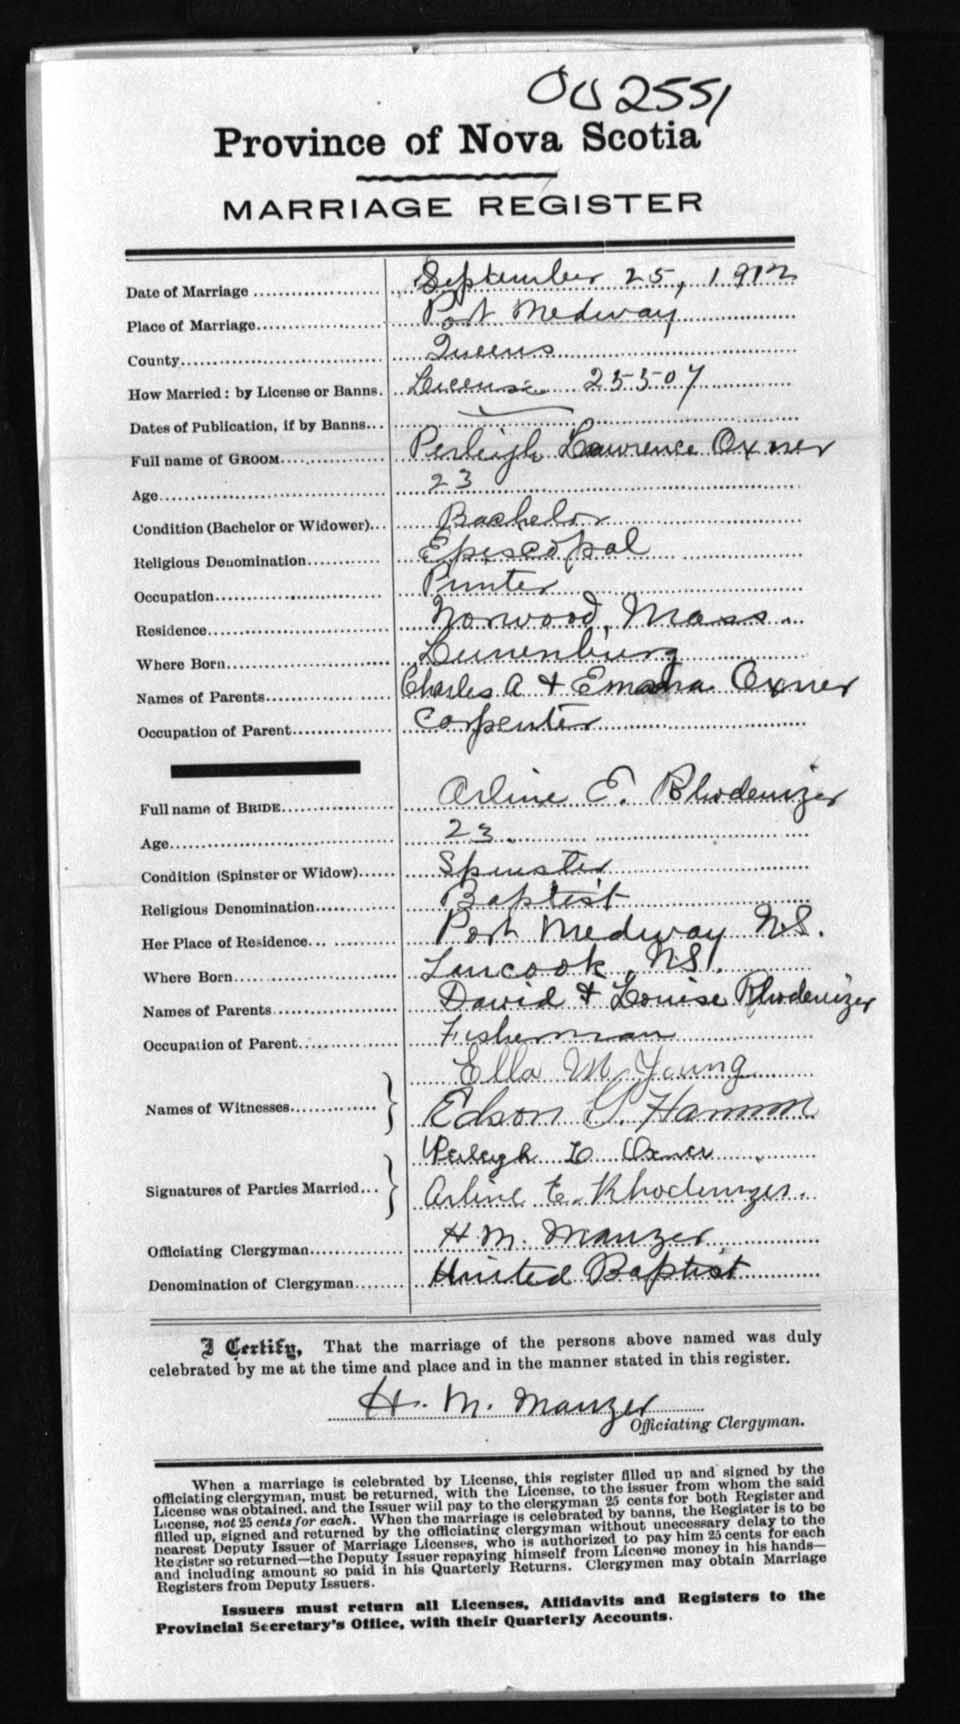 002551
Province of Nova Scotia
MARRIAGE REGISTER
Date of Marriage September 25, 1912
Place of Marriage Port Medway
County Queens
How Married: by License or Banns. License 25507
Dates of Publication, if by Banns
Full name of GROOM Perleigh Lawrence Oxner
Age 23
Condition (Bachelor or Widower) Bachelor
Religious Denomination Episcopal
Occupation Printer
Residence Norwood, Mass.
Where Born Lunenburg
Names of Parents Charles A & Emma Oxner
Occupation of Parent Carpenter
Full name of BRIDE Arline E. Rhodenizer
Age 23
Condition (Spinster or Widow) Spinster
Religious Denomination Baptist
Her Place of Residence Port Medway N.S.
Where Born Tancook, N.S.
Names of Parents David & Louise Rhodenizer
Occupation of Parent Fisherman
Names of Witnesses Ella M Young
Edson G. Hamm
Signatures of Parties Married Perleigh L Oxner
Arline E. Rhodenizer.
Officiating Clergyman H. M. Manzer
Denomination of Clergyman United Baptist
I Certify, That the marriage of the persons above named was duly
celebrated by me at the time and place and in the manner stated in this register.
H. M. Manzer
Officiating Clergyman.
When a marriage is celebrated by License, this register filled up and signed by the
officiating clergyman, must be returned, with the License, to the issuer from whom the said
License was obtained, and the Issuer will pay to the clergyman 25 cents for both Register and
License, not 25 cents for each. When the marriage is celebrated by banns, the Register is to be
filled up, signed and returned by the officiating clergyman without unnecessary delay to the
nearest Deputy Issuer of Marriage Licenses, who is authorized to pay him 25 cents for each
Register so returned—the Deputy Issuer repaying himself from License money in his hands—
and including amount so paid in his Quarterly Returns. Clergymen may obtain Marriage
Registers from Deputy Issuers.
Issuers must return all Licenses, Affidavits and Registers to the
Provincial Secretary's Office, with their Quarterly Accounts.